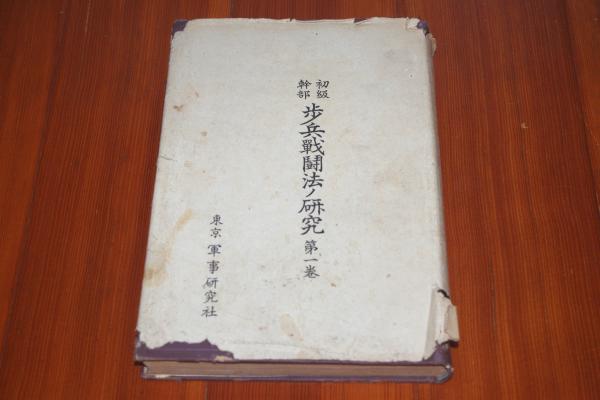 初級
幹部
歩兵戰鬪法ノ研究 第一卷
東京 軍事研究社